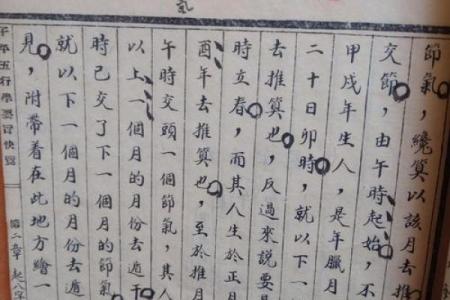 節氣，纔算以該月去推
交節，由午時起始，不
甲戌年生人，是年臘月
二十日卯時，就以下一
去推算也，反過來說要是
時立春，而其人生於正月
酉年去推算也，至於推月
午時交頭一個節氣，其人
以上一個月的月份去遁干
時已交了下一個月的節氣
就以下一個月的月份去遁
見，附帶着在此地方繪一
子平五行學要旨快覽
第二章 起八字